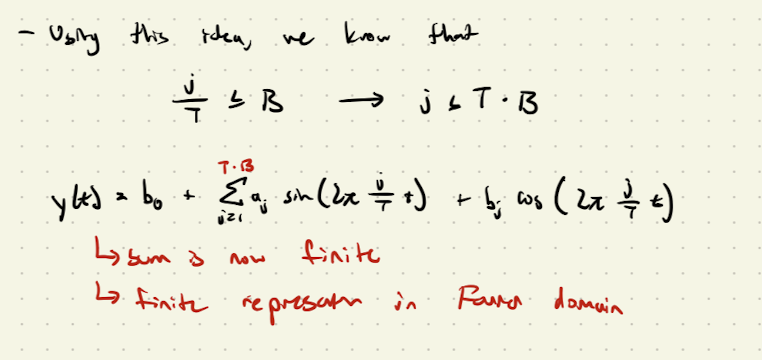 - Using this idea, we know that
j/T ≤ B → j ≤ T · B
y(t) = b₀ + Σ_{j=1}^{T·B} aⱼ sin(2π j/T t) + bⱼ cos(2π j/T t)
↳ sum is now finite
↳ finite in domain